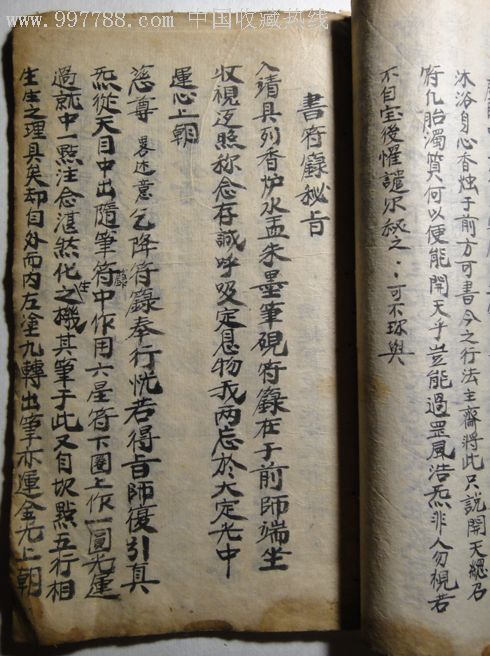 www.997788.com 中国收藏热线
沐浴身心香烛于前方可書今之行法主齋將此只説開天總召
符凢胎濁質何以便能開天乎豈能過罡風浩炁非人勿視若
不自宝後懼譴尔秘之〻可不珎與
書符籙秘旨
入靖具列香炉水盂朱墨筆硯符籙在于前師端坐
收視返照称念存誠呼吸定息物我两忘於大定光中
運心上朝
慈尊 畧述意 乞降符籙奉行恍若得旨師復引真
炁從天目中出隨筆符籙中作用六星符下圈上作一圓光運
過就中一點注念湛然化生之機其筆于此又自坎點五行相
生生之理具矣却自外而内左塗九轉出筆亦運金光上朝